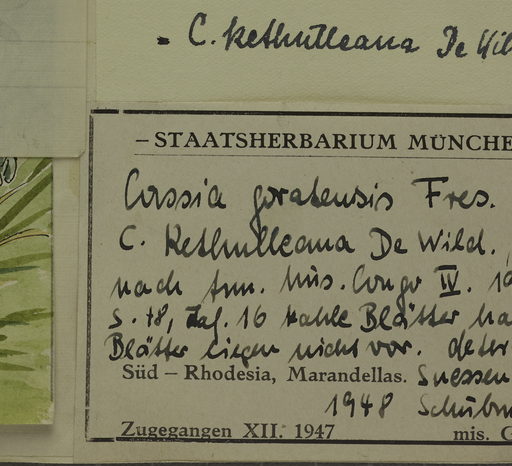 = C. Kethulleana De Wil
– STAATSHERBARIUM MÜNCHE
Cassia goratensis Fres.
C. Kethulleana De Wild.
nach Ann. Mus. Congo IV. 19
S. 78, Taf. 16 kahle Blätter ha
Blätter liegen nicht vor. deter
Süd – Rhodesia, Marandellas. Suessen
1948 Schubu
Zugegangen XII. 1947 mis. G